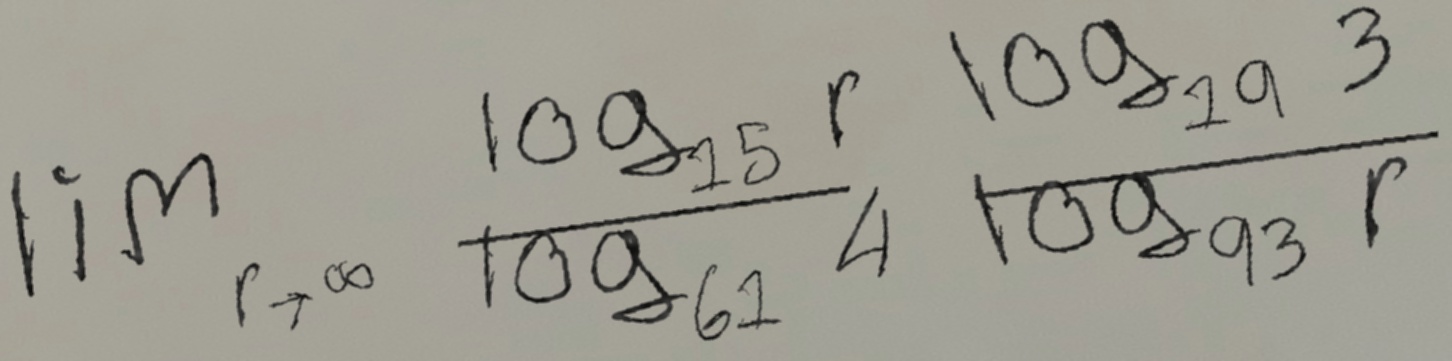 \lim_{r \to \infty} \frac{\log_{15} r}{\log_{61} 4} \frac{\log_{19} 3}{\log_{93} r}